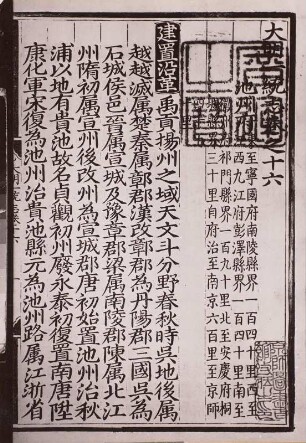 大明一統志卷之十六
池州府
至寧國府南陵縣界一百四十里西
江府彭澤縣界一百
祁門縣界一百九十里北至安慶府桐
三十里自府治至南京六百里至京師
建置沿革 禹貢揚州之域天文斗分野春秋時吳地後屬
越越滅屬楚秦屬鄣郡漢改章郡為丹陽郡三國吳為
石城侯邑晉屬宣城及豫章郡梁屬南陵郡陳屬北江
州隋初屬宣州後改州為宣城郡唐初始置池州治秋
浦以地有貴池故名貞觀初州廢永泰初復置南唐陞
康化軍宋復為池州治貴池縣元為池州路属江浙省